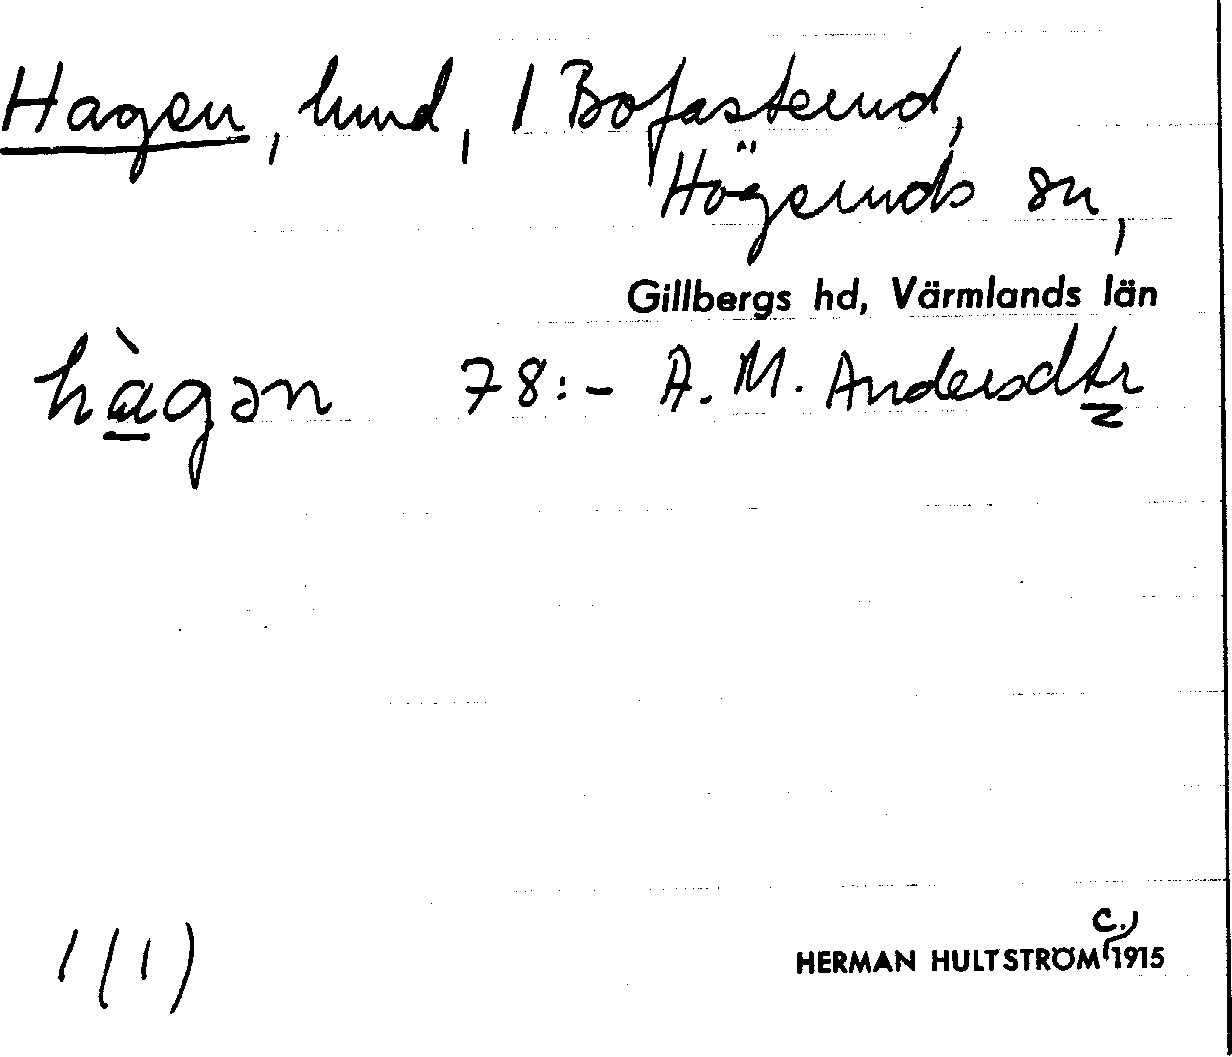 Hagen, lund, 1 Bofasterud,
Högeruds sn,
Gillbergs hd, Värmlands län
hàgən 78:- A. M. Andersdtr
1(1)
HERMAN HULTSTRÖM c., 1915